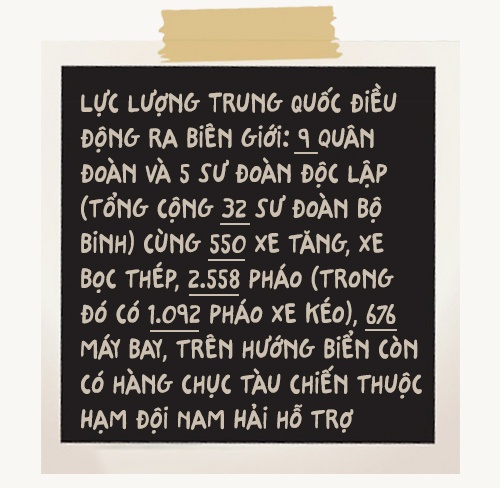 LỰC LƯỢNG TRUNG QUỐC ĐIỀU
ĐỘNG RA BIÊN GIỚI: 9 QUÂN
ĐOÀN VÀ 5 SƯ ĐOÀN ĐỘC LẬP
(TỔNG CỘNG 32 SƯ ĐOÀN BỘ
BINH) CÙNG 550 XE TĂNG, XE
BỌC THÉP, 2.558 PHÁO (TRONG
ĐÓ CÓ 1.092 PHÁO XE KÉO), 676
MÁY BAY, TRÊN HƯỚNG BIỂN CÒN
CÓ HÀNG CHỤC TÀU CHIẾN THUỘC
HẠM ĐỘI NAM HẢI HỖ TRỢ